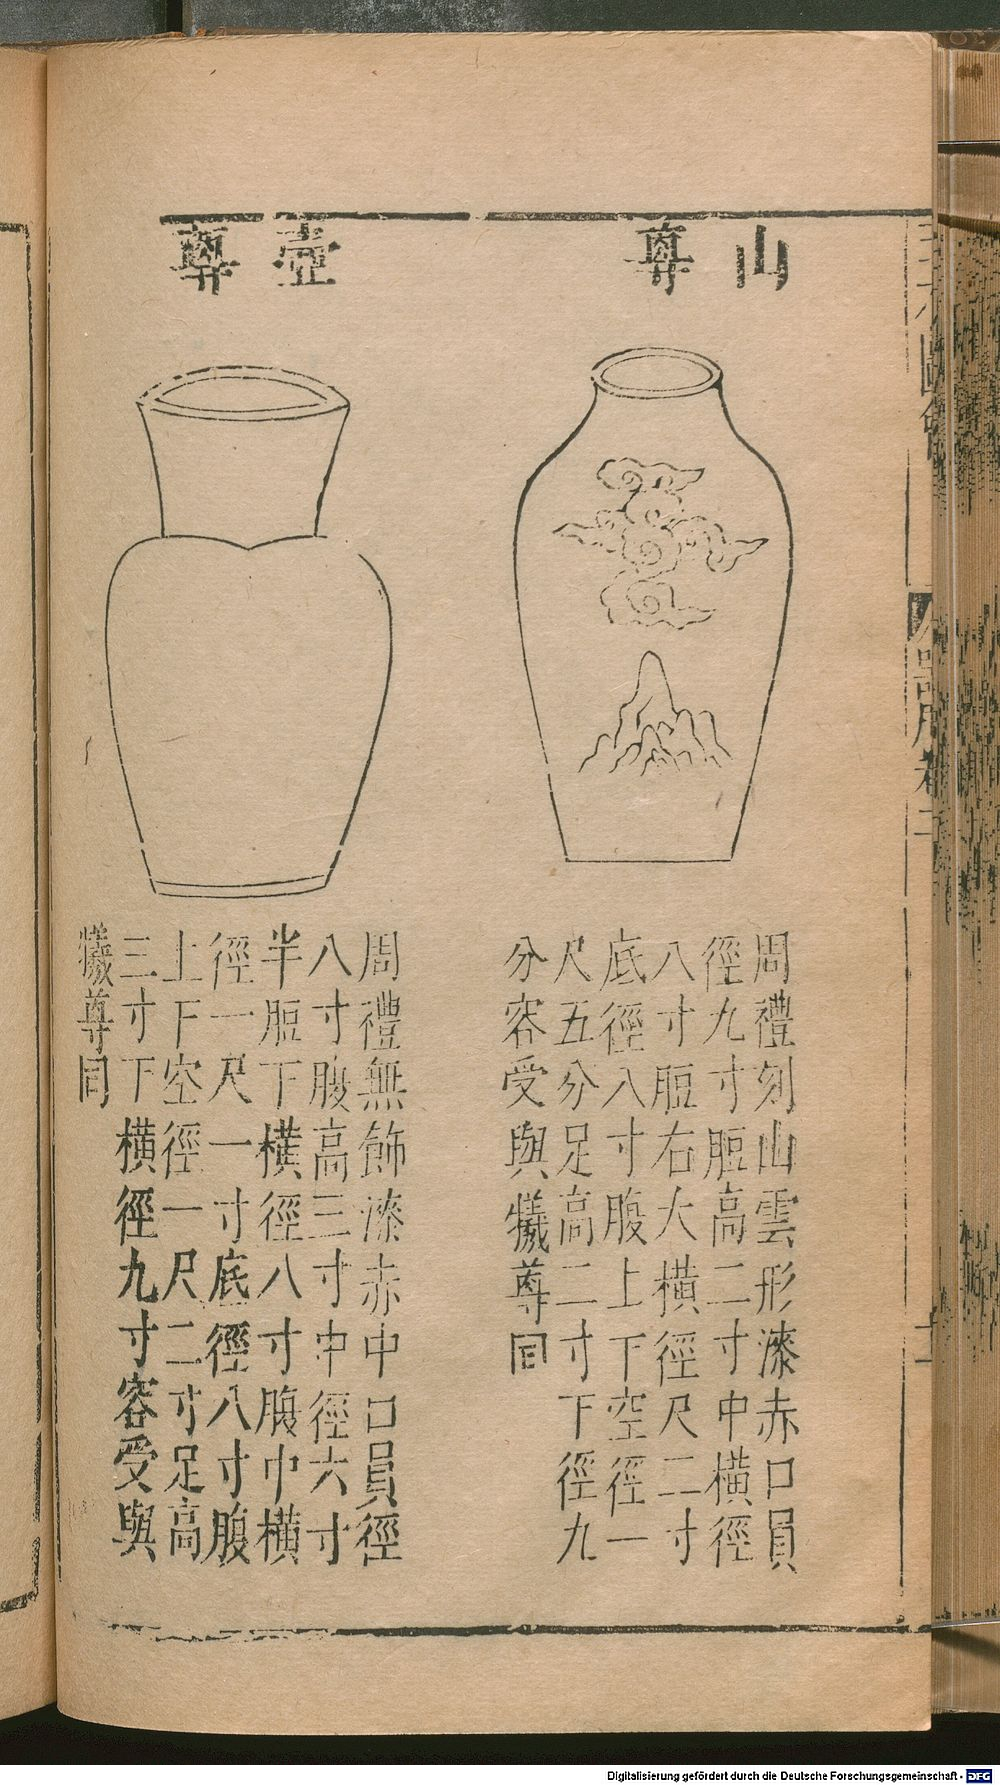 山尊
周禮刻山雲形漆赤口員
徑九寸脰高二寸中橫徑
八寸脰右大橫徑尺二寸
底徑八寸腹上下空徑一
尺五分足高二寸下徑九
分容受與犧尊同
壺尊
周禮無飾漆赤中口員徑
八寸腹高三寸中徑六寸
半脰下橫徑八寸腹中橫
徑一尺一寸底徑八寸腹
上下空徑一尺二寸足高
三寸下橫徑九寸容受與
犧尊同
器用卷二
十一
Digitalisierung gefördert durch die Deutsche Forschungsgemeinschaft - DFG